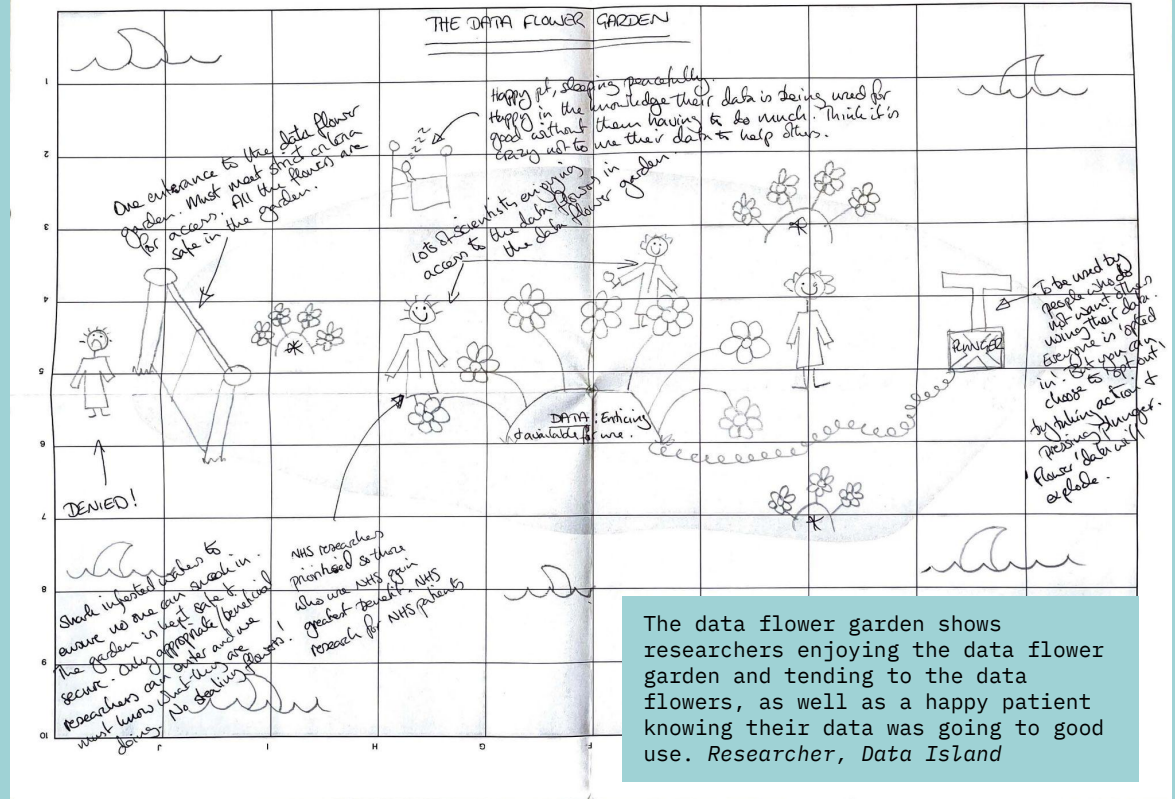 THE DATA FLOWER GARDEN
Happy pt, sleeping peacefully.
Happy in the knowledge their data is being used for
good without them having to do much. Think it's
crazy not to use their data to help others.
zzzz
One enterance to the data flower
garden. Must meet strict criteria
for access. All the flowers are
safe in the garden.
Lots of scientists enjoying
access to the data flowers in
the data flower garden.
To be used by
people who do
not want others
using their data.
Everyone is 'opted
in'. But you can
choose to 'opt out'
by taking action &
pressing plunger.
'Flower' data will
explode.
DATA: Enticing
& available for use.
DENIED!
Shark infested waters to
ensure no one can sneak in.
The garden is kept safe &
secure. Only appropriate/beneficial
researchers can enter and we
must know what they are
doing. No stealing flowers!
NHS researchers
prioritised so those
who use NHS gain
greatest benefit. NHS
research for NHS patients
1
2
3
4
5
6
7
8
9
10
J
I
H
G
F
The data flower garden shows
researchers enjoying the data flower
garden and tending to the data
flowers, as well as a happy patient
knowing their data was going to good
use. Researcher, Data Island